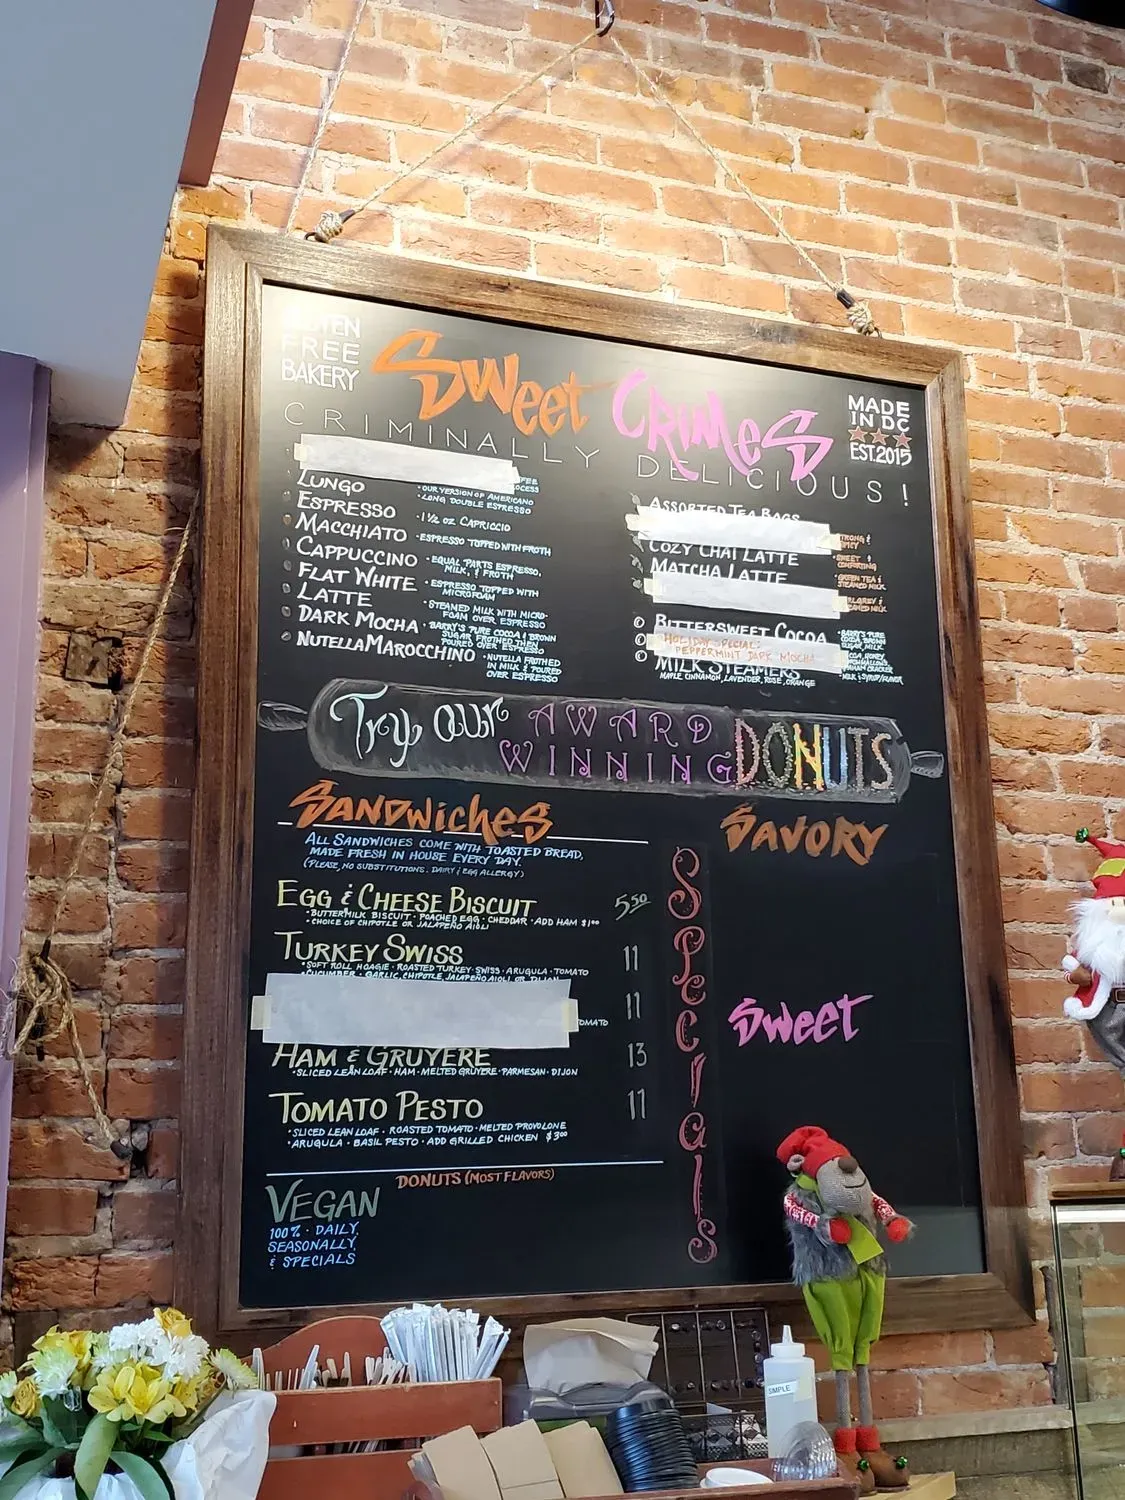 FREE
BAKERY
Sweet CRIMeS
MADE
IN DC
EST.2015
CRIMINALLY DELICIOUS!
LUNGO
• OUR VERSION OF AMERICANO
• LONG DOUBLE ESPRESSO
ESPRESSO • 1½ OZ CAPRICCIO
MACCHIATO • ESPRESSO TOPPED WITH FROTH
CAPPUCCINO • EQUAL PARTS ESPRESSO,
MILK, & FROTH
FLAT WHITE • ESPRESSO TOPPED WITH
MICROFOAM
LATTE • STEAMED MILK WITH MICRO-
FOAM OVER ESPRESSO
DARK MOCHA • BARRY'S PURE COCOA & BROWN
SUGAR FROTHED THEN
POURED OVER ESPRESSO
NUTELLA MAROCCHINO • NUTELLA FROTHED
IN MILK & POURED
OVER ESPRESSO
ASSORTED TEA BAGS
COZY CHAI LATTE • SWEET &
COMFORTING
MATCHA LATTE • GREEN TEA &
STEAMED MILK
BITTERSWEET COCOA • BARRY'S PURE
COCOA, BROWN
SUGAR, MILK
HOLIDAY SPECIAL:
PEPPERMINT DARK MOCHA
MILK STEAMERS • MILK & SYRUP/FLAVOR
MAPLE CINNAMON, LAVENDER, ROSE, ORANGE
Try our AWARD
WINNING DONUTS
SANDWICHES
ALL SANDWICHES COME WITH TOASTED BREAD,
MADE FRESH IN HOUSE EVERY DAY.
(PLEASE, NO SUBSTITUTIONS. DAIRY & EGG ALLERGY)
EGG & CHEESE BISCUIT 5.50
• BUTTERMILK BISCUIT • POACHED EGG • CHEDDAR • ADD HAM $1.00
• CHOICE OF CHIPOTLE OR JALAPEÑO AIOLI
TURKEY SWISS 11
• SOFT ROLL HOAGIE • ROASTED TURKEY • SWISS • ARUGULA • TOMATO
• CUCUMBER • GARLIC, CHIPOTLE, JALAPEÑO AIOLI, OR DIJON
11
TOMATO
HAM & GRUYERE 13
• SLICED LEAN LOAF • HAM • MELTED GRUYERE • PARMESAN • DIJON
TOMATO PESTO 11
• SLICED LEAN LOAF • ROASTED TOMATO • MELTED PROVOLONE
• ARUGULA • BASIL PESTO • ADD GRILLED CHICKEN $3.00
VEGAN DONUTS (MOST FLAVORS)
100% • DAILY,
SEASONALLY,
& SPECIALS
Specials
SAVORY
Sweet
SIMPLE